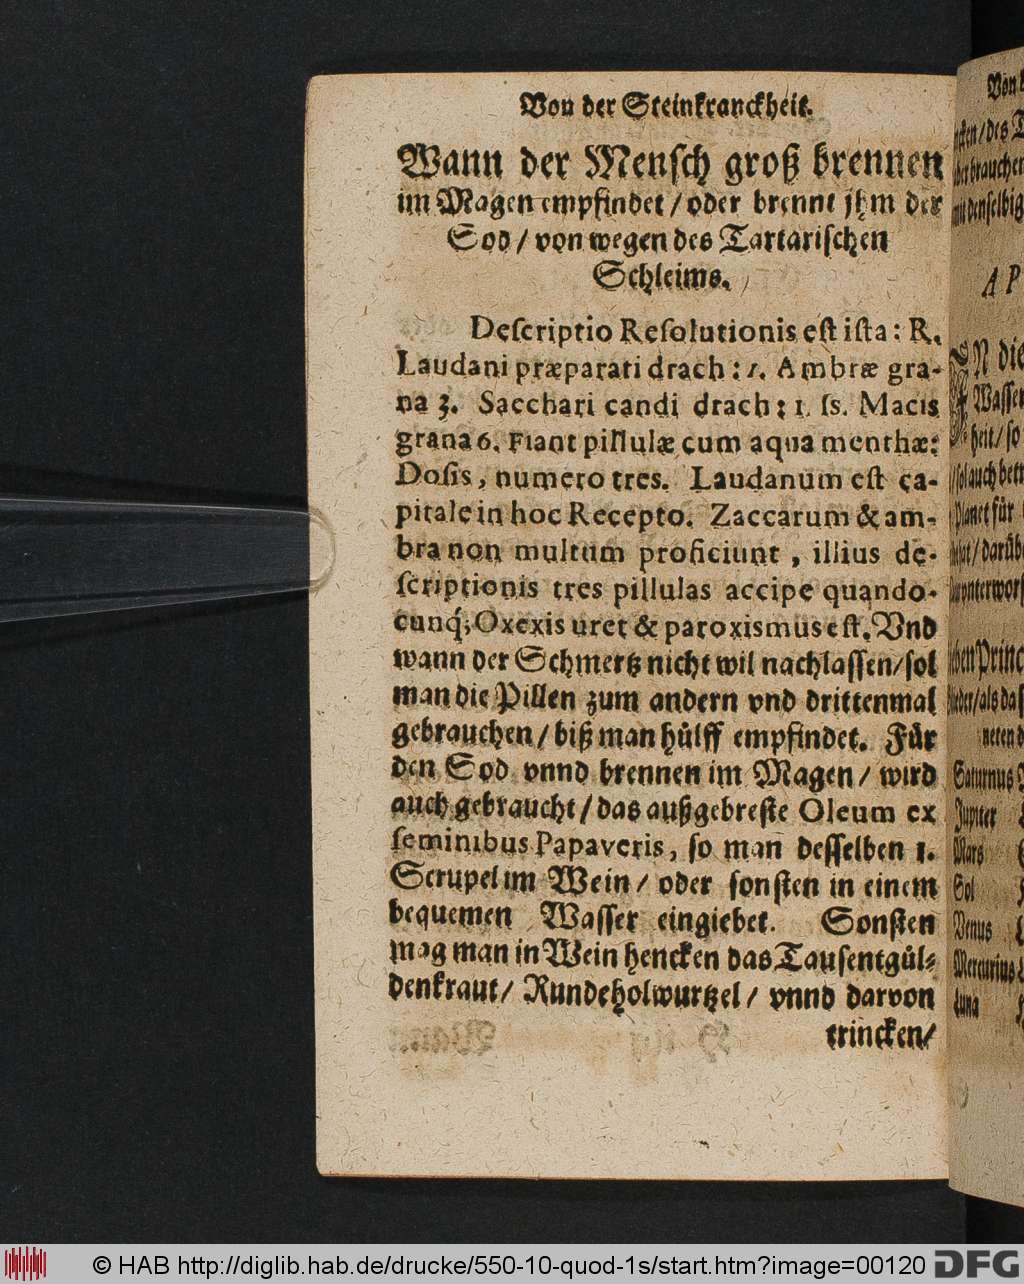 Von der Steinkranckheit.
Wann der Mensch groß brennen
im Magen empfindet / oder brennt jhm der
Sod / von wegen des Tartarischen
Schleims.
Descriptio Resolutionis est ista: R.
Laudani præparati drach: 1. Ambræ gra-
na 3. Sacchari candi drach: 1. ſs. Macis
grana 6. Fiant pillulæ cum aqua menthæ:
Dosis, numero tres. Laudanum est ca-
pitale in hoc Recepto. Zaccarum & am-
bra non multum proficiunt, illius de-
scriptionis tres pillulas accipe quando-
cunq́; Oxexis uret & paroxismus est. Vnd
wann der Schmertz nicht wil nachlassen / sol
man die Pillen zum andern vnd drittenmal
gebrauchen / biß man hůlff empfindet. Fůr
den Sod vnnd brennen im Magen / wird
auch gebraucht / das außgebreste Oleum ex
seminibus Papaveris, so man desselben 1.
Scrupel im Wein / oder sonsten in einem
bequemen Wasser eingiebet. Sonsten
mag man in Wein hencken das Tausentgůl-
denkraut / Rundeholwurtzel / vnnd darvon
trincken /
A P
Saturnus
Jupiter
Mars
Sol
Venus
Mercurius
Luna
© HAB http://diglib.hab.de/drucke/550-10-quod-1s/start.htm?image=00120 DFG